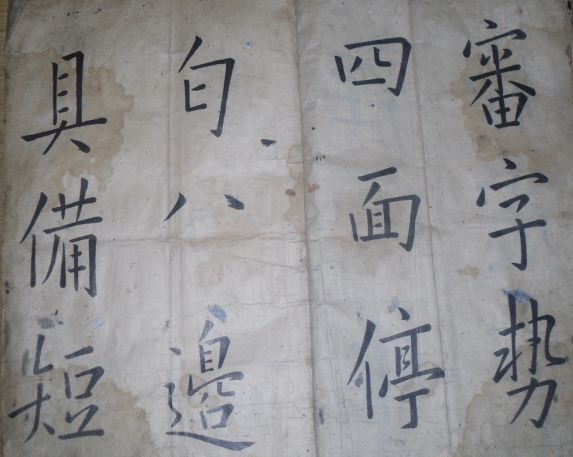 審字势
四面停
旬、八邊
具備短